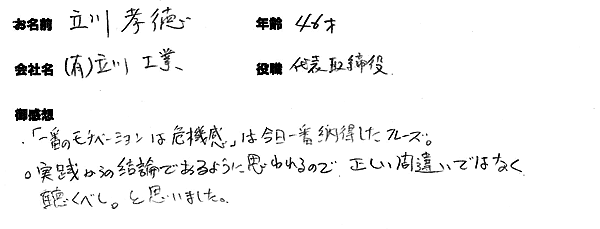 お名前 立川 孝徳 年齢 46才
会社名 (有)立川工業 役職 代表取締役
御感想
・「一番のモチベーションは危機感」は今日一番納得したフレーズ。
○実践からの結論であるように思われるので 正しい間違いではなく
聴くべし。と思いました。